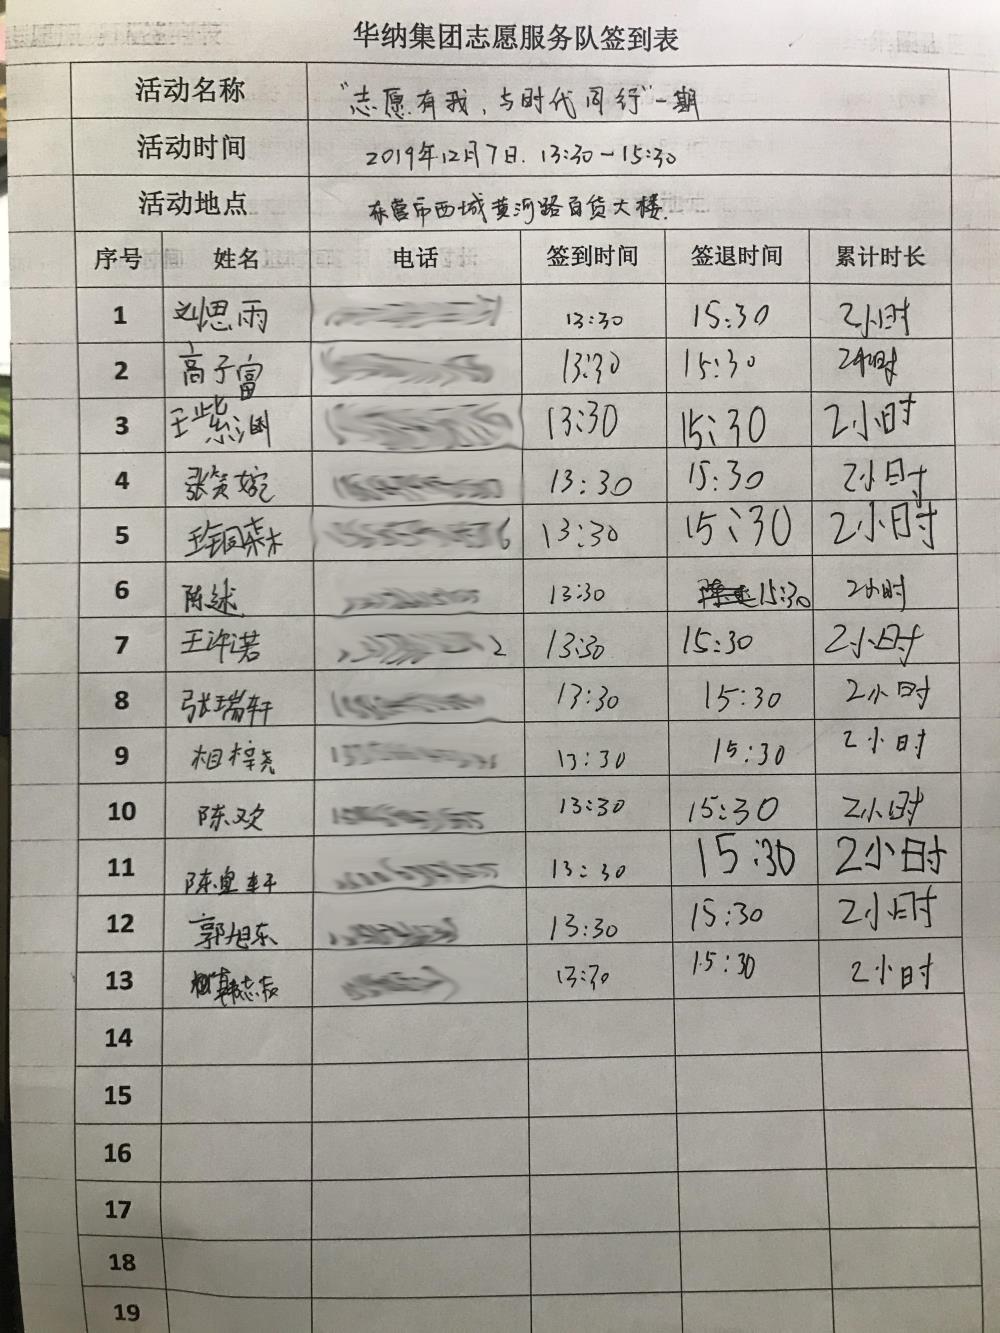 华纳集团志愿服务队签到表
活动名称 “志愿有我，与时代同行”一期
活动时间 2019年12月7日. 13:30-15:30
活动地点 东营市西城黄河路百货大楼.
序号 姓名 电话 签到时间 签退时间 累计时长
1 刘思雨 13:30 15:30 2小时
2 高子富 13:30 15:30 2小时
3 王紫渊 13:30 15:30 2小时
4 张笑婉 13:30 15:30 2小时
5 13:30 15:30 2小时
6 陈述 13:30 15:30 2小时
7 王许诺 2 13:30 15:30 2小时
8 张瑞轩 13:30 15:30 2小时
9 相梓尧 13:30 15:30 2小时
10 陈欢 13:30 15:30 2小时
11 陈宜轩 13:30 15:30 2小时
12 郭旭东 13:30 15:30 2小时
13 13:30 15:30 2小时
14
15
16
17
18
19